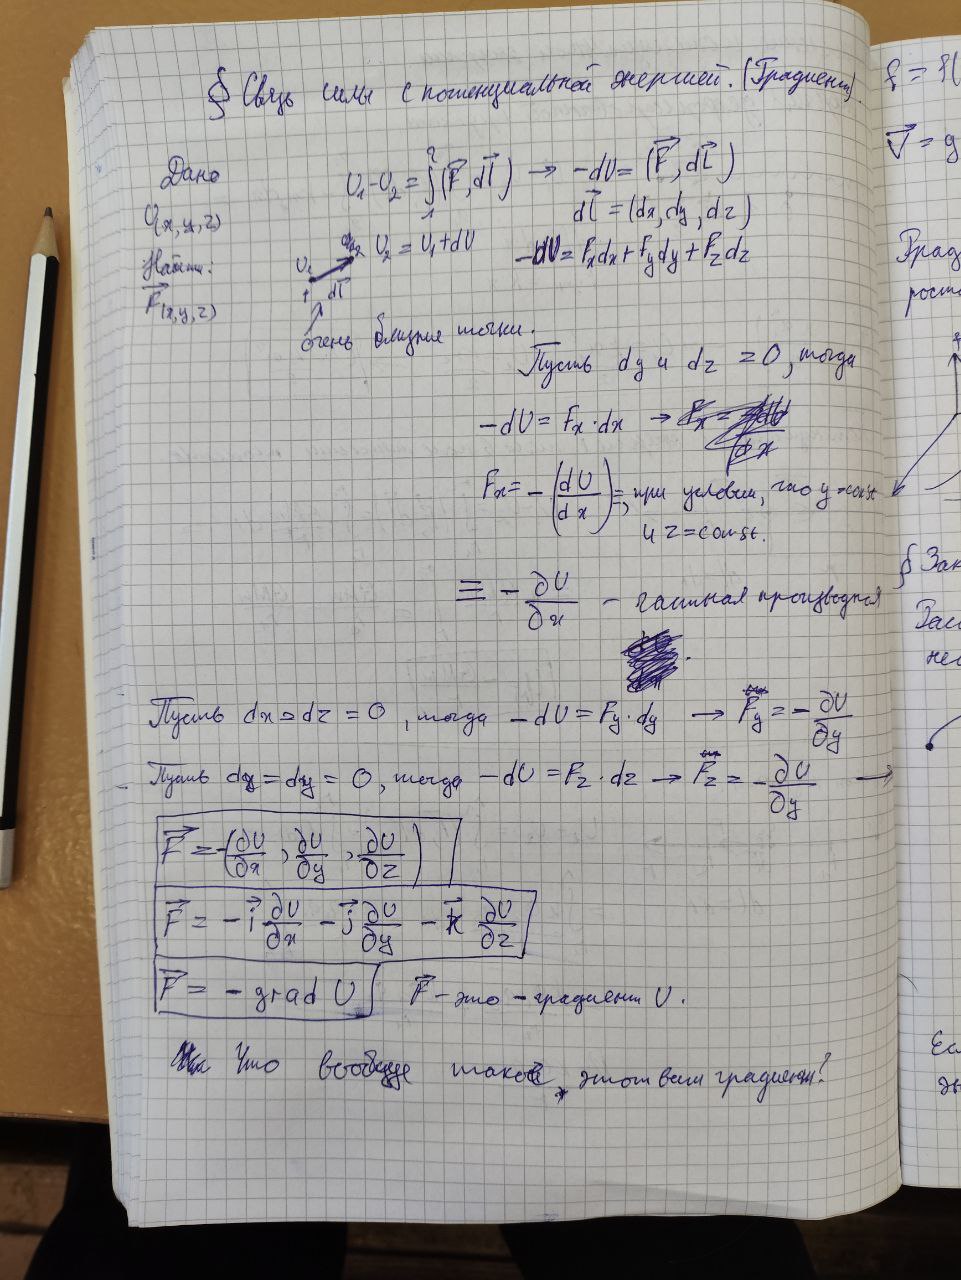 § Связь силы с потенциальной энергией. (Градиент).
Дано
U(x,y,z)
Найти:
F⃗(x,y,z)
U₁-U₂ = ∫₁² (F⃗, dl⃗) → -dU = (F⃗, dl⃗)
dl⃗ = (dx, dy, dz)
U₂ = U₁ + dU
-dU = Fₓdx + F_y dy + F_z dz
U₁
1
2
dl⃗
очень близкие точки.
Пусть dy и dz = 0, тогда
-dU = Fₓ·dx →
Fₓ = -(dU/dx) =, при условии, что y=const
и z=const.
≡ - ∂U/∂x - частная производная
Пусть dx=dz = 0, тогда -dU = F_y·dy → F_y = - ∂U/∂y
Пусть dx=dy = 0, тогда -dU = F_z·dz → F_z = - ∂U/∂y →
F⃗ = -(∂U/∂x, ∂U/∂y, ∂U/∂z)
F⃗ = -i⃗ ∂U/∂x - j⃗ ∂U/∂y - k⃗ ∂U/∂z
F⃗ = - grad U F⃗ - это - градиент U.
Что вообще такое, этот ваш градиент?
Град
рост
§ Зак
Расс